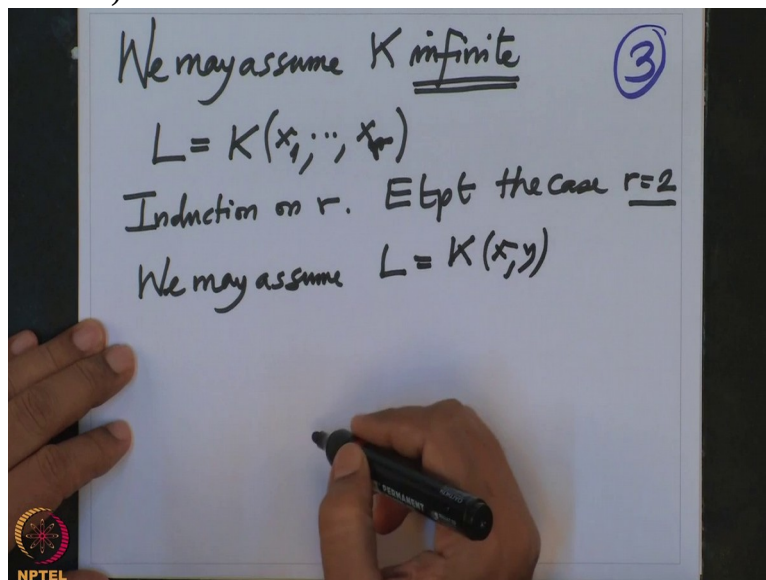 We may assume K infinite
3
L = K(x₁, ..., xᵣ)
Induction on r. Etpt the case r=2
We may assume L = K(x, y)
PERMANENT
NPTEL